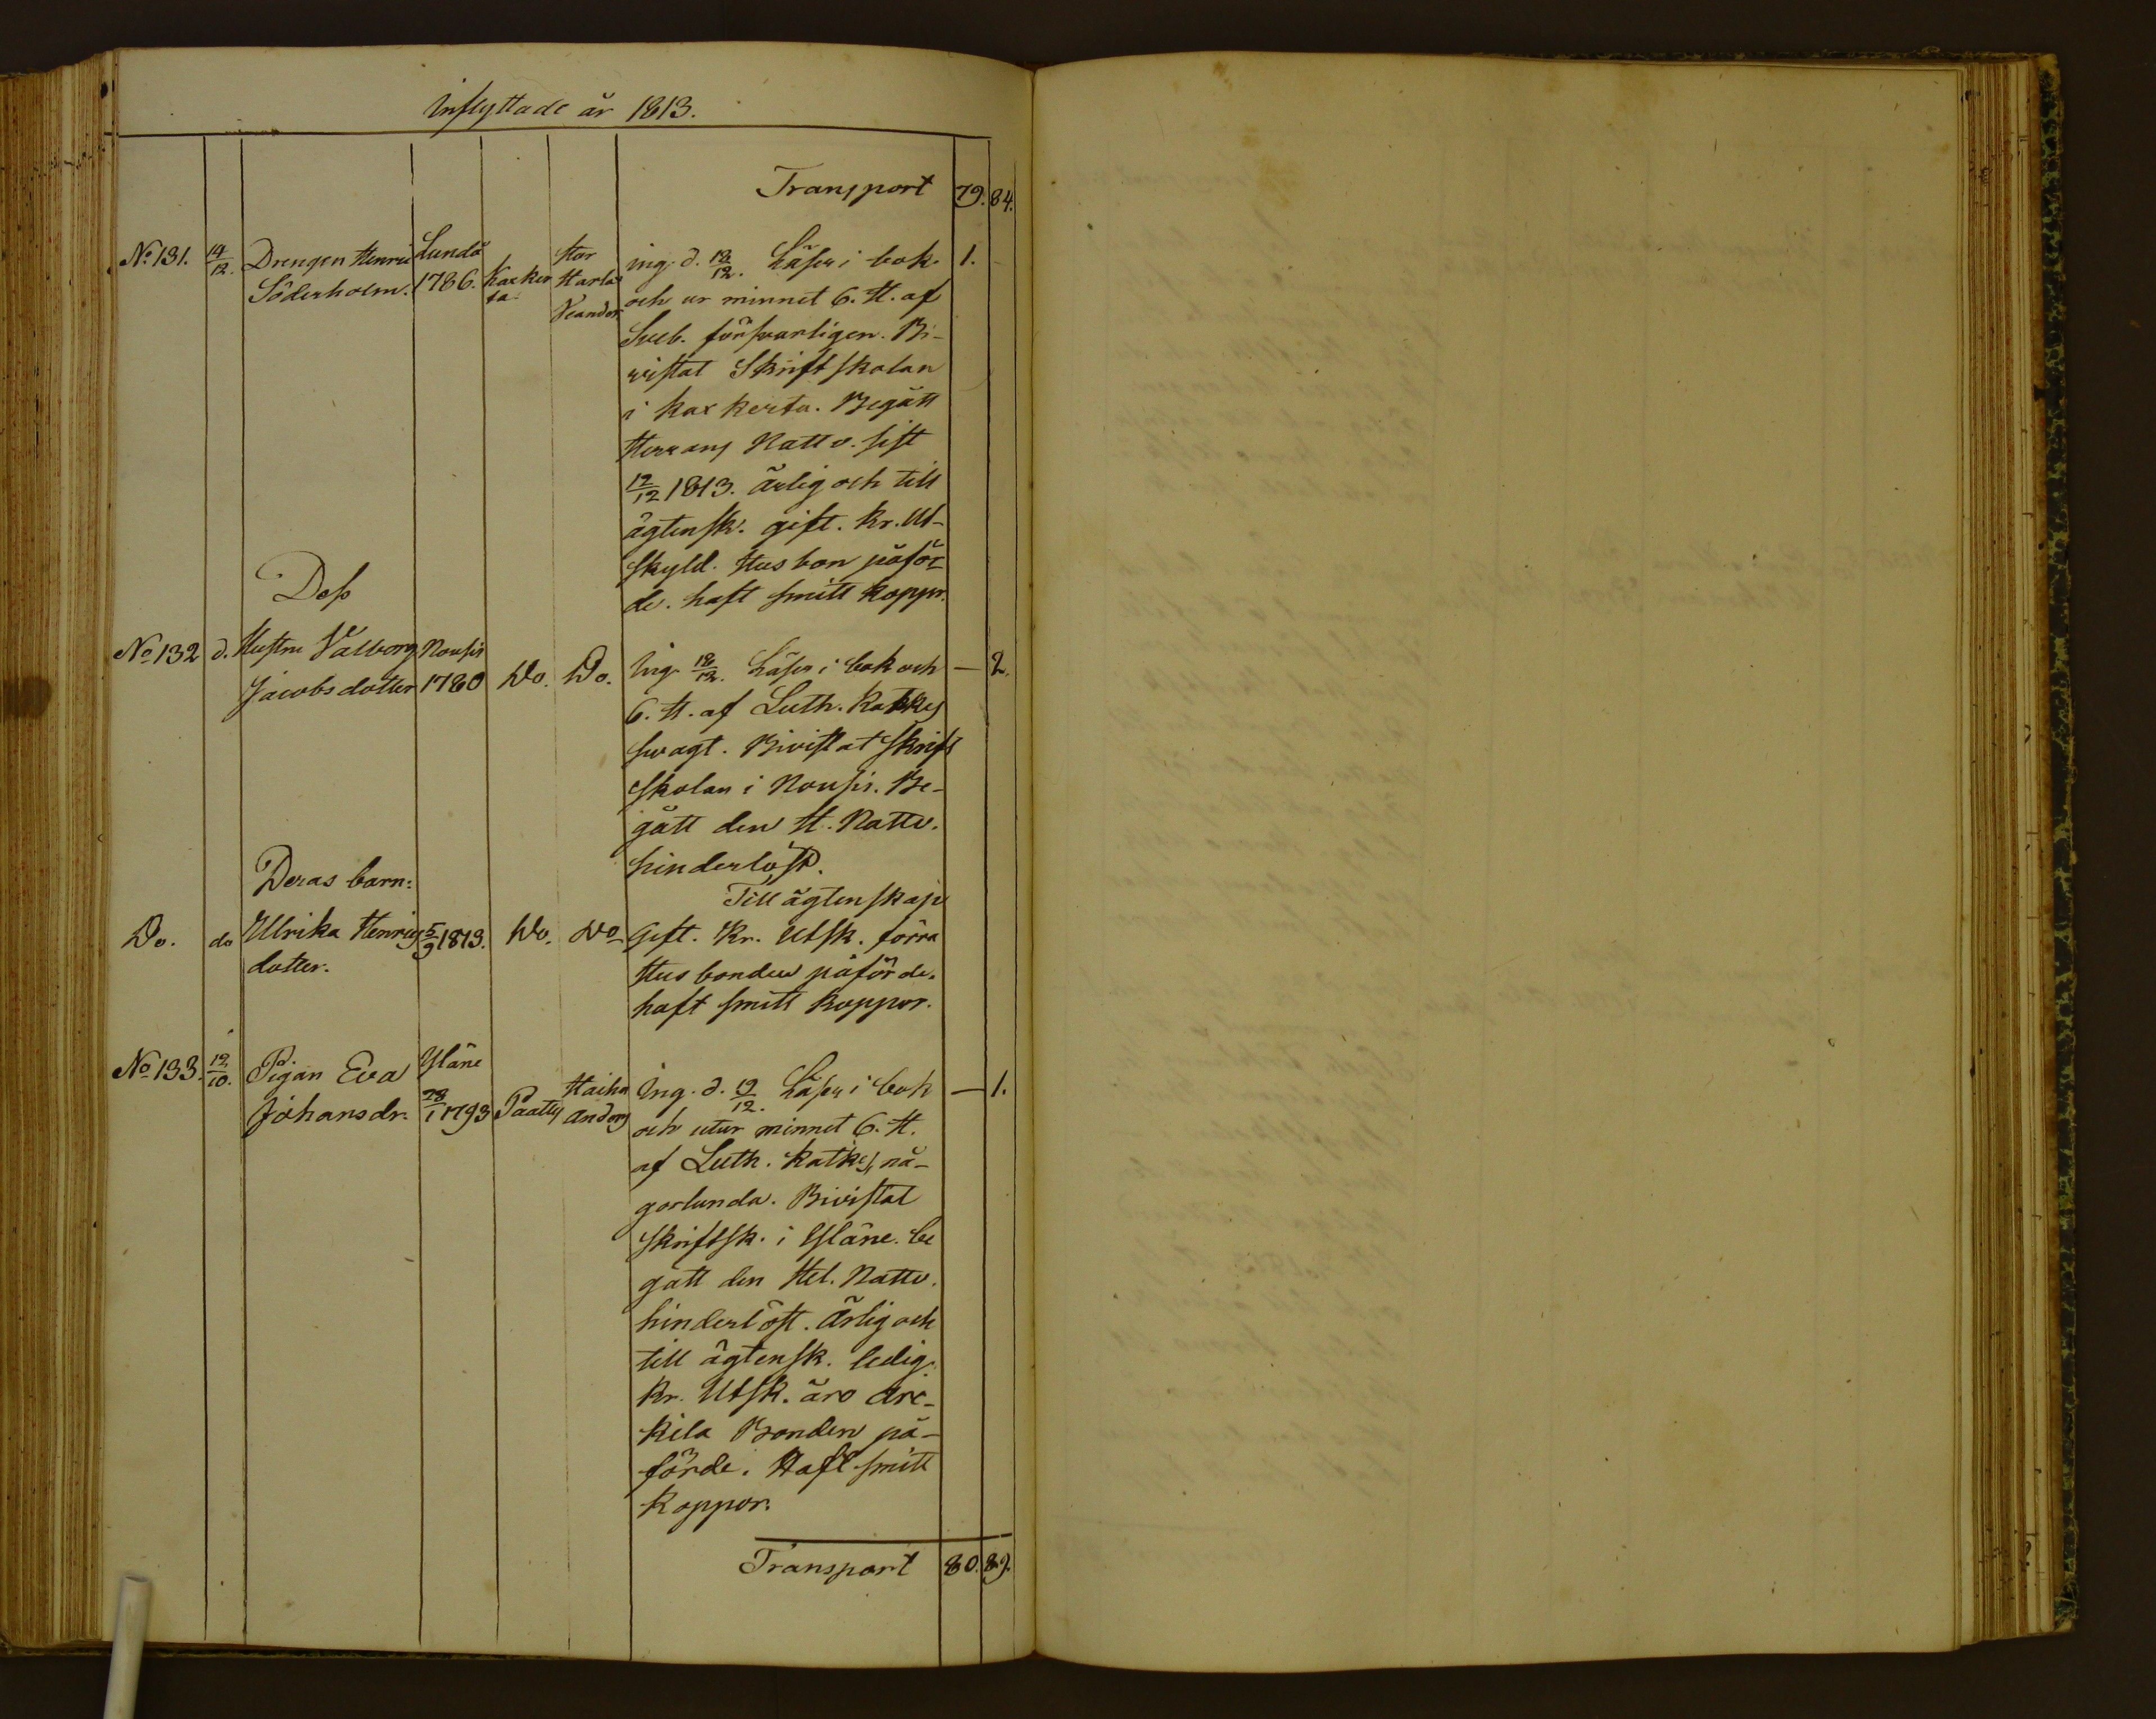 Inflyttade år 1813.
Transport 79. 84.
No 131. 14/12. Drengen Henric Lundo Stor ing. d. 18/12. Läser i bok 1.
Söderholm. 1786. Kaxker Harla och ur minnet 6. H. af
ta
Sveb. försvarligen. Bi-
vistat Skriftskolan
i Kaxkerta. Begått
Herrans Nattv. sist
12/12 1813. ärlig och till
ägtensk. gift. Kr. Ut-
skyld. Husbon påför-
de. haft smitt koppr.
Dess
No 132 d. Hustru Valborg Nousis
Jacobsdotter 1780 Do. Do. Ing. 18/12. Läser i bok och — 2.
6. H. af Luth. Katkes
svagt. Bivistat Skrift
skolan i Nousis. Be-
gått den H. Nattv.
hinderlöst.
Deras barn:
Till ägtenskap
Do. do Ulrika Henrics 5/9 1813. Do. Do Gift. Kr. Utsk. förra
dotter.
Husbonden påförde.
haft smitt koppor.
No 133. 19/10. Pigan Eva Yläne
Johansdr. 28/1 1793 Paattis Haiha Ing. d. 19/12. Läser i bok — 1.
Anders
och utur minnet 6. H.
af Luth. Katkes, nå-
gorlunda. Bivistat
skriftsk. i Yläne. be
gått den Hel. Nattv.
hinderlöst. Ärlig och
till ägtensk. ledig.
Kr. Utsk. äro Are-
kila Bonden på-
förde. Haft smitt
Koppor.
Transport 80. 89.